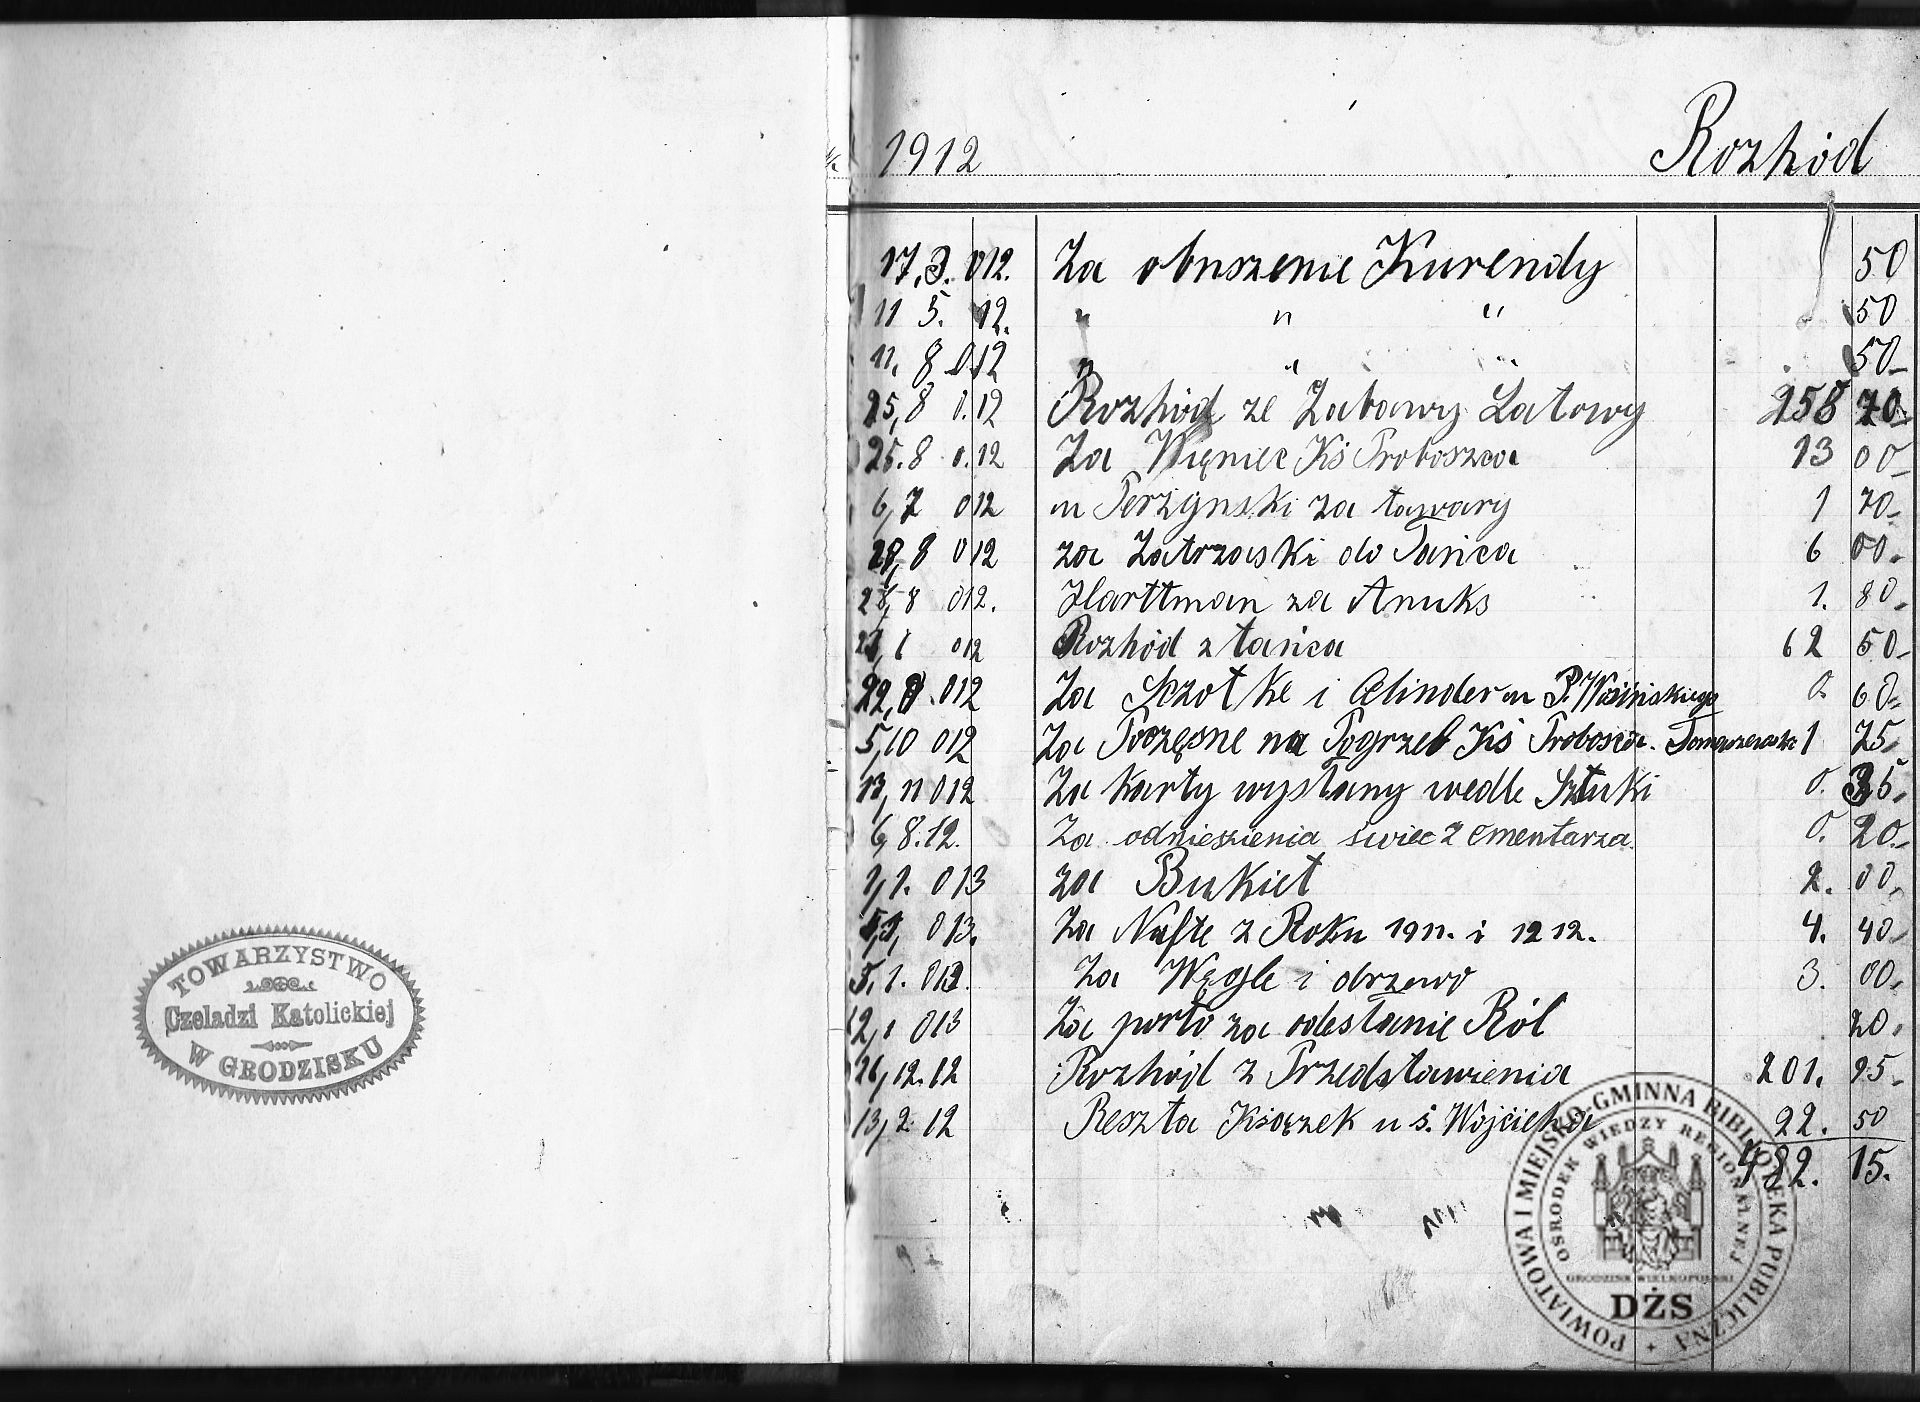 TOWARZYSTWO
Czeladzi Katolickiej
W GRODZISKU
1912 Rozhód
17,3. 012. Za obnszenie Kurendy 50
11 5. 12. " " " 50
11. 8 0.12 " " " 50
25,8 0.12 Rozhód ze Zabawy Latowy 258 70
25.8 0.12 Za Więniec Kś Proboszcza 13 00
6,7 012 u Perzynski za towary 1 70
28,8 012 za Zatrzaski do Tańca 6 00
28,8 012. Harttman za Anuks 1. 80
012 Rozhód z tańca 62 50
22,8.012 Za Sczotke i Celinder u P. 0. 60
5,10 012 Za Poczęsne na Pogrzeb Kś Proboscza. 1 75
13,11 012 Za Karty wysłany wedle Sztuki 0. 35
6,8.12. Za odnieszienia świec z ementarza. 0. 20
1,1. 013 za Bukiet 2. 00
013. Za Nafte z Roku 1911. i 1212. 4. 40
5.1. 013. Za Węgle i drzewo 3. 00
2,1 013 Za porto za odesłanie Ról 20
26,12.12 Rozhód z Przedstawienia 201. 95
13,2.12 Reszta Ksiązek u ś. Wojciecha 22. 50
482. 15.
POWIATOWA I MIEJSKO-GMINNA BIBLIOTEKA PUBLICZNA
OSRODEK WIEDZY REGIONALNEJ
GRODZISK WIELKOPOLSKI
DŻS